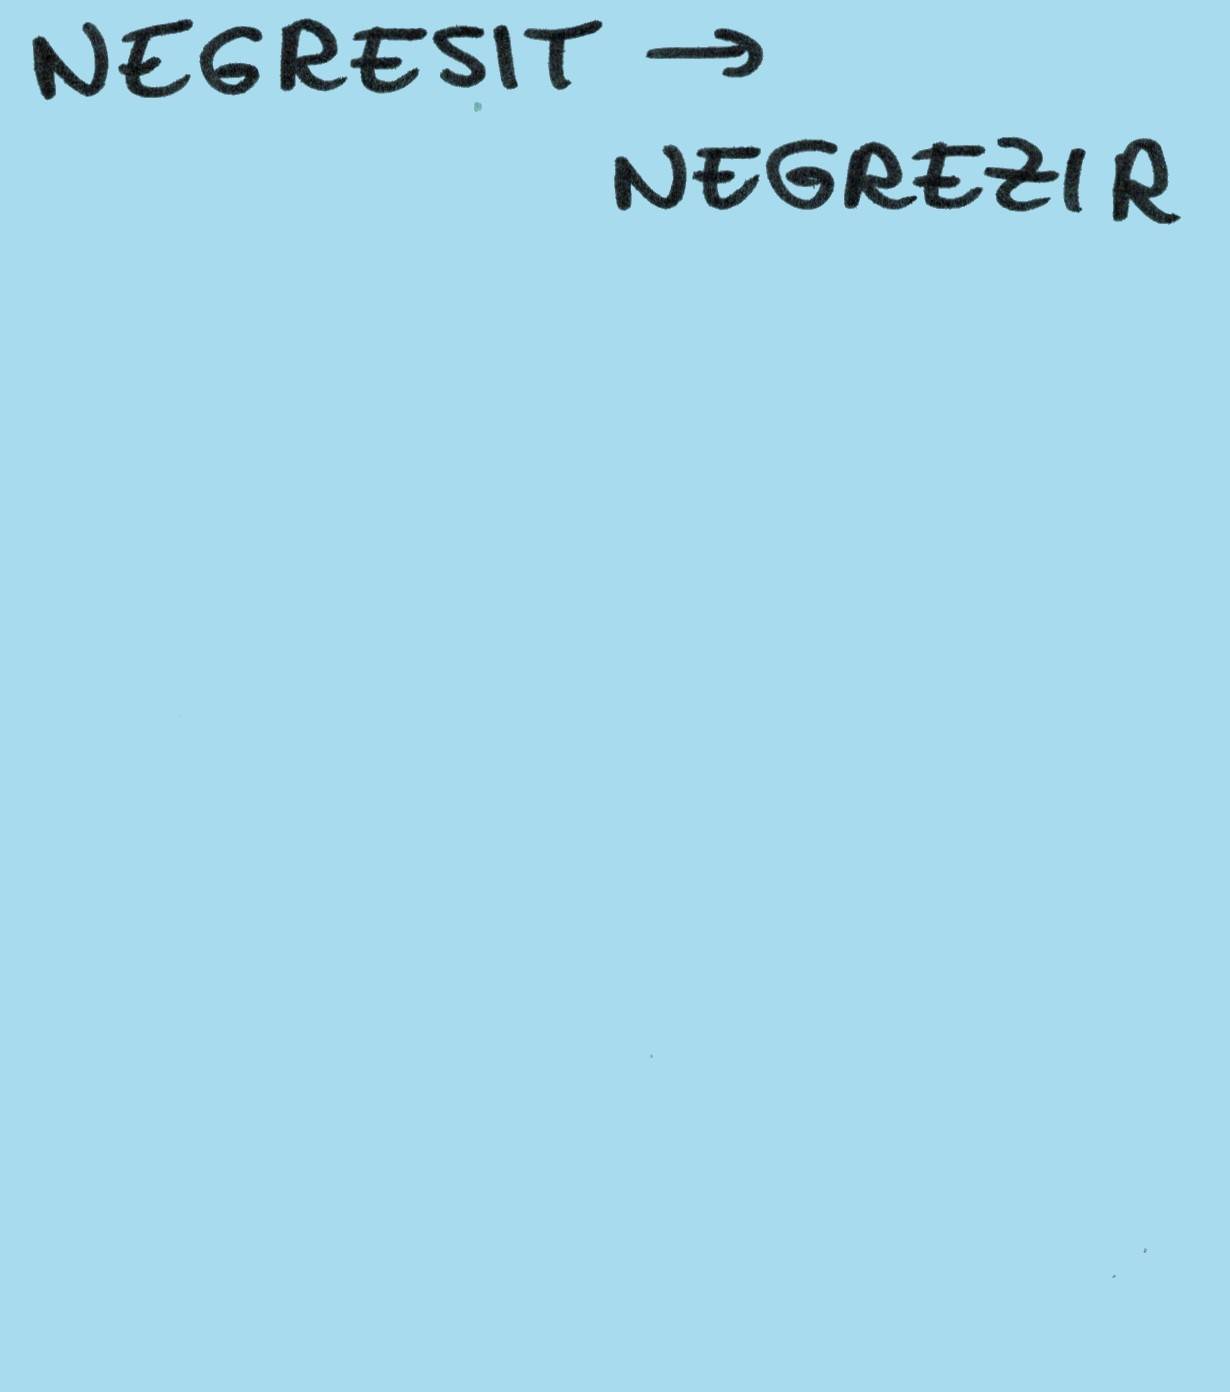 NEGRESIT →
NEGREZIR